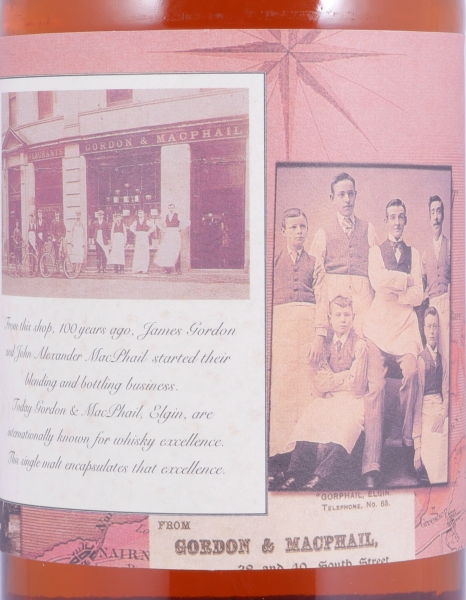 GORDON & MACPHAIL
From this shop, 100 years ago, James Gordon
and John Alexander MacPhail started their
blending and bottling business.
Today Gordon & MacPhail, Elgin, are
internationally known for whisky excellence.
This single malt encapsulates that excellence.
"GORPHAIL, ELGIN.
TELEPHONE, NO. 63.
FROM
GORDON & MACPHAIL,
38 and 40, South Street
NAIRN